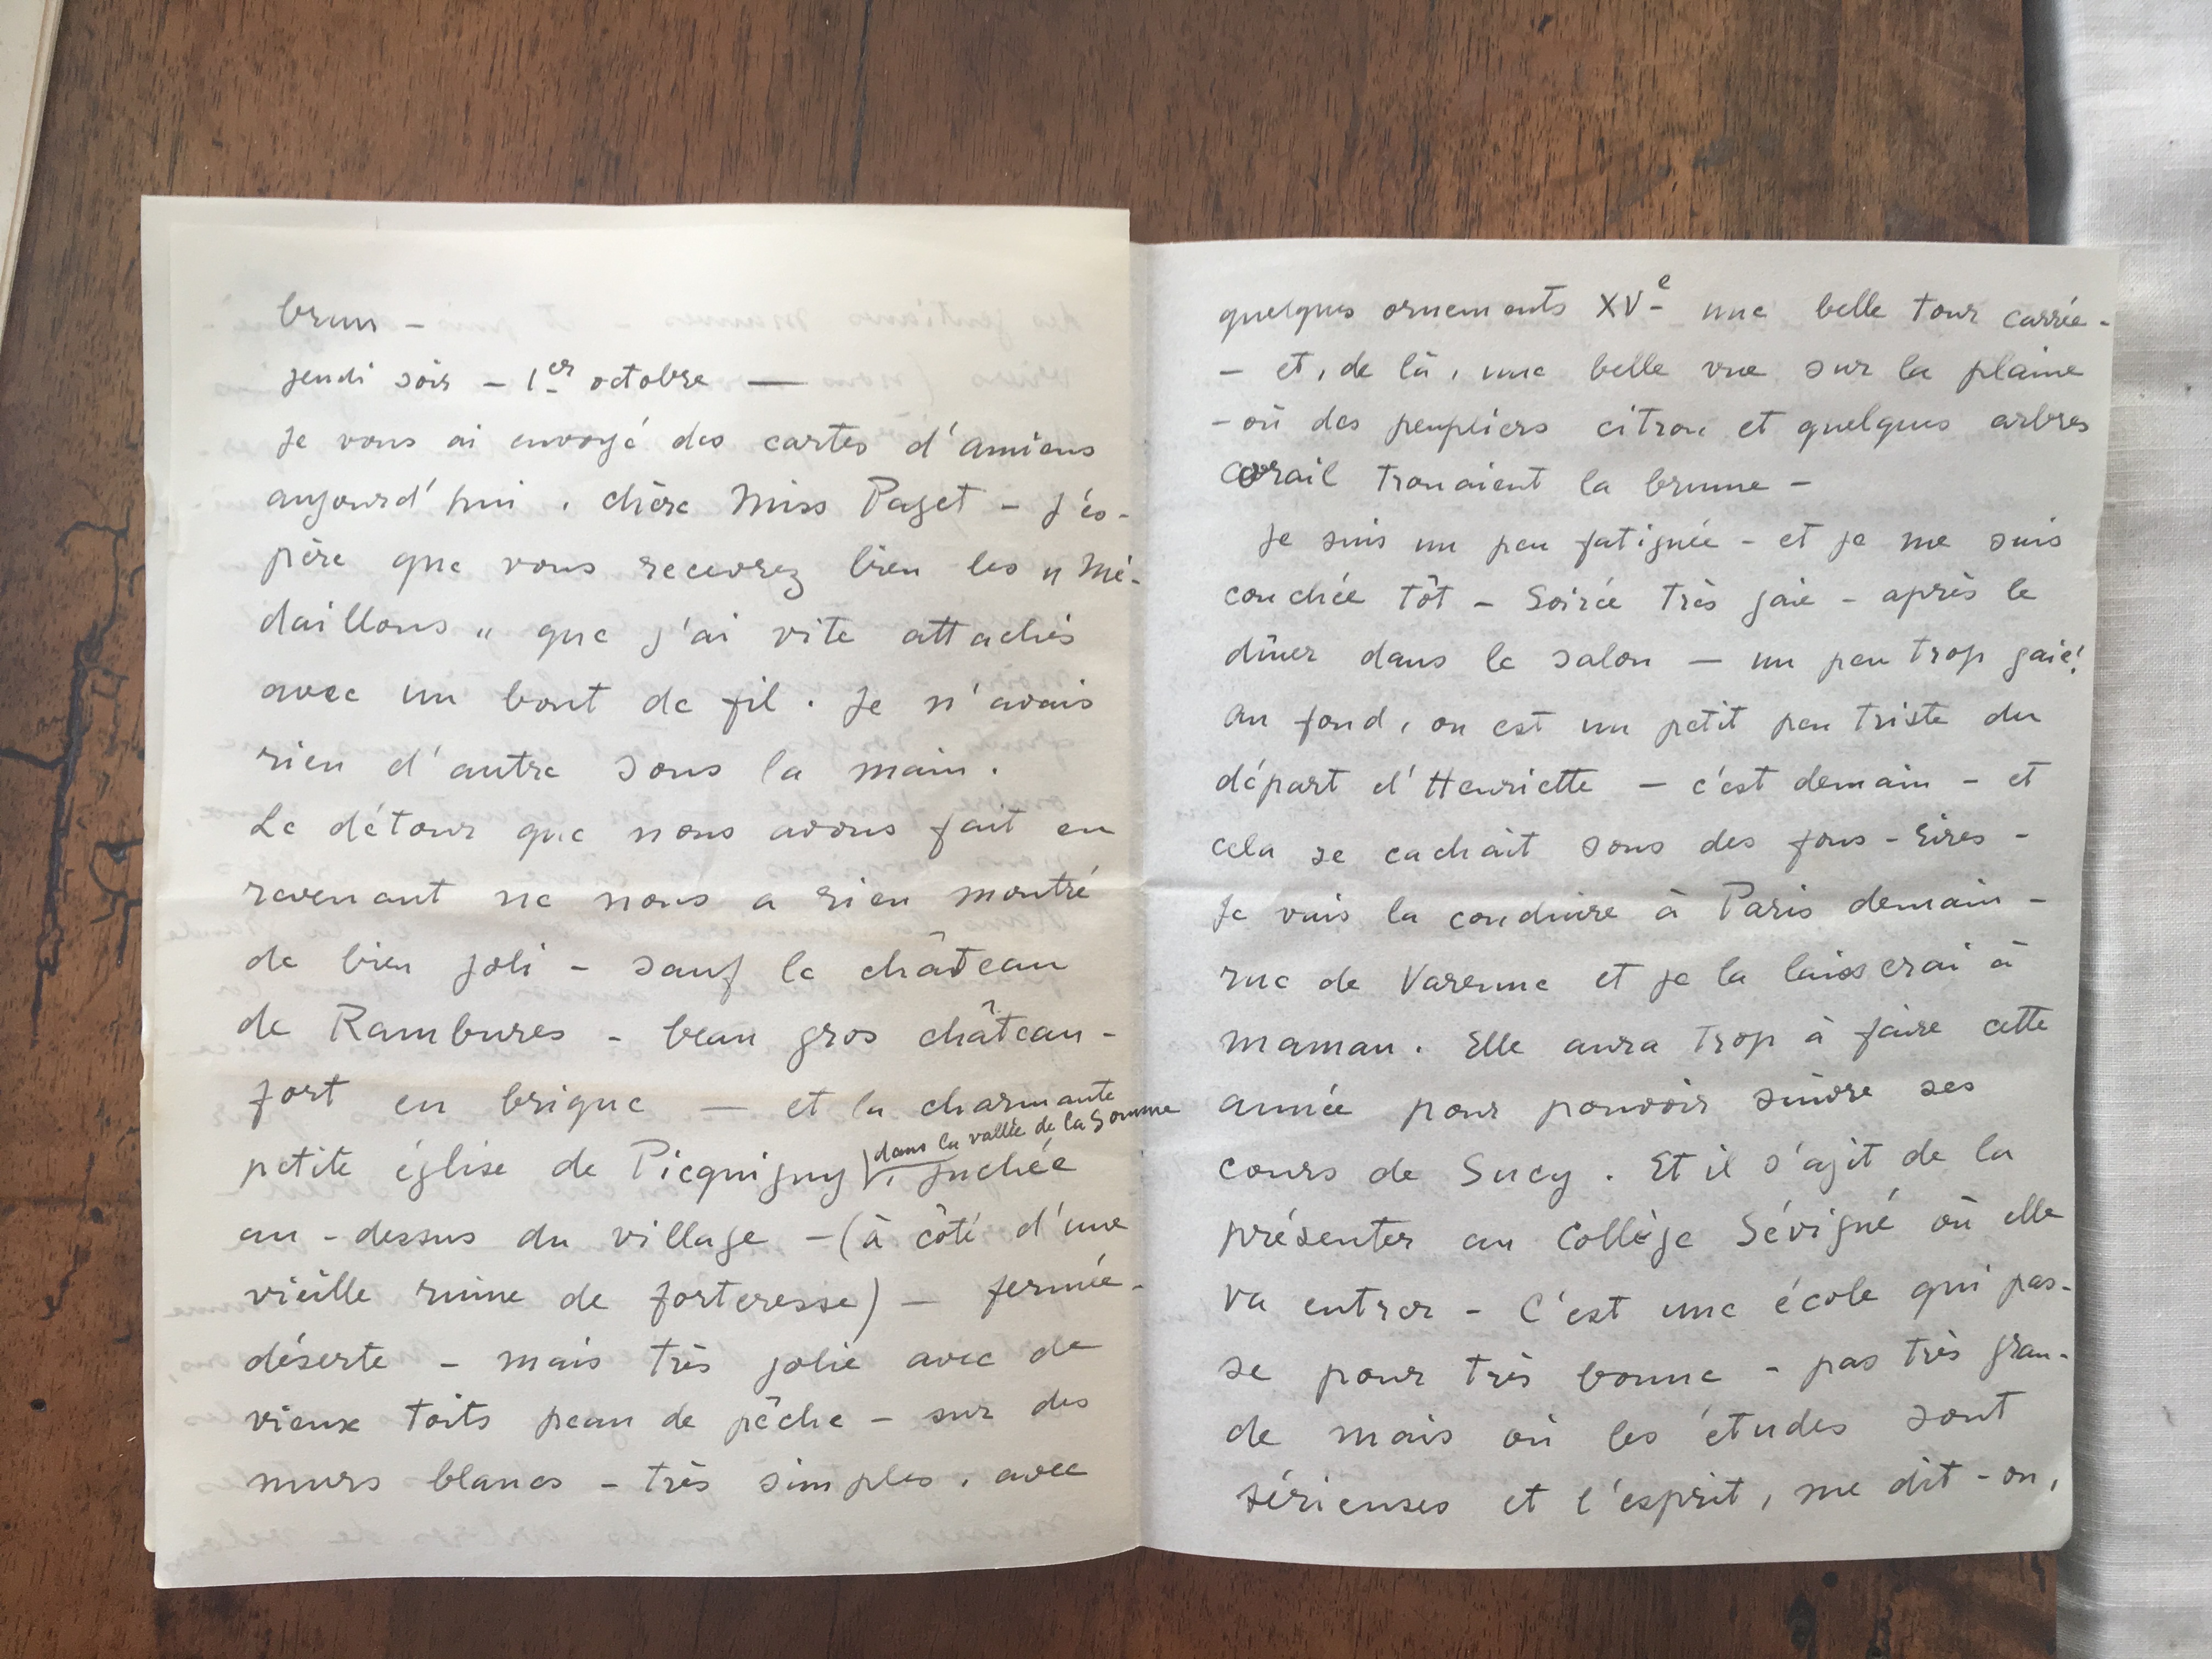 brun –
jeudi soir – 1er octobre —
Je vous ai envoyé des cartes d'Amiens
aujourd'hui, chère Miss Paget – J'es-
père que vous recevrez bien les "Mé-
daillons" que j'ai vite attachés
avec un bout de fil. Je n'avais
rien d'autre sous la main.
Le détour que nous avons fait en
revenant ne nous a rien montré
de bien joli – sauf le château
de Rambures – beau gros château-
fort en brique — et la charmante
dans la vallée de la Somme
petite église de Picquigny, juchée
au-dessus du village – (à côté d'une
vieille ruine de forteresse) – fermée –
déserte – mais très jolie avec de
vieux toits peau de pêche – sur des
murs blancs – très simples, avec
quelques ornements XVe une belle tour carrée –
– et, de là, une belle vue sur la plaine
– où des peupliers citron et quelques arbres
corail trouaient la brume –
Je suis un peu fatiguée – et je me suis
couchée tôt – Soirée très gaie – après le
dîner dans le salon — un peu trop gaie!
Au fond, on est un petit peu triste du
départ d'Henriette – c'est demain – et
cela se cachait sous des fous-rires –
Je vais la conduire à Paris demain –
rue de Varenne et je la laisserai à
maman. Elle aura trop à faire cette
année pour pouvoir suivre ses
cours de Sucy. Et il s'agit de la
présenter au Collège Sévigné où elle
va entrer – C'est une école qui pas-
se pour très bonne – pas très gran-
de mais où les études sont
sérieuses et l'esprit, me dit-on,